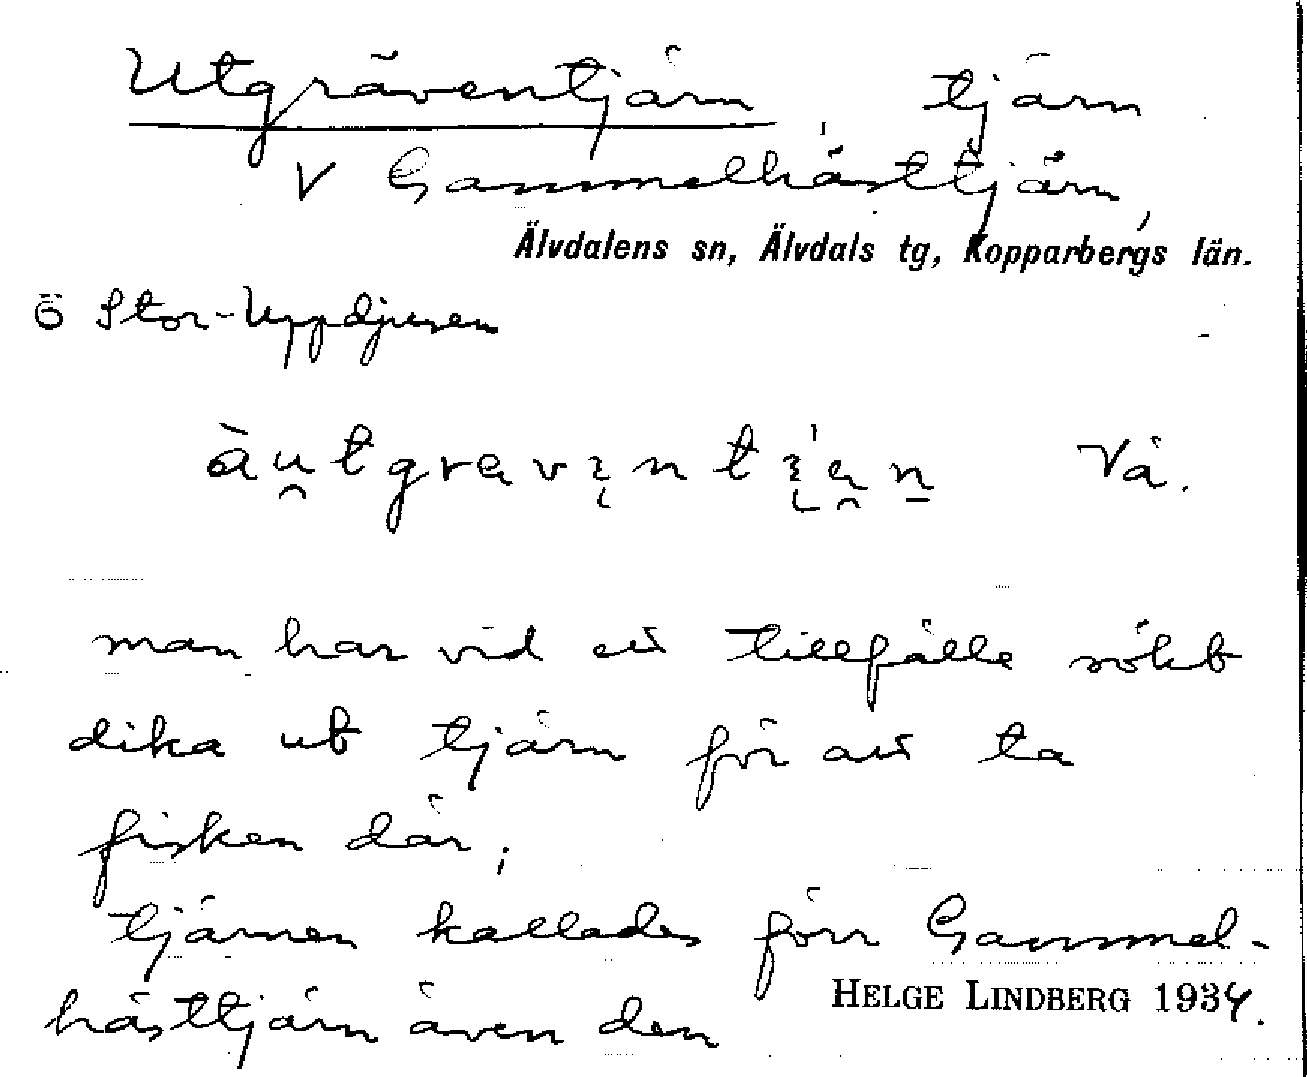 Utgräventjärn tjärn
V Gammelhästtjärn,
Älvdalens sn, Älvdals tg, Kopparbergs län.
Ö Stor-Uppdjusen
Vå.
man har vid ett tillfälle sökt
dika ut tjärn för att ta
fisken där;
tjärnen kallades förr Gammel-
hästtjärn även den
HELGE LINDBERG 1934.